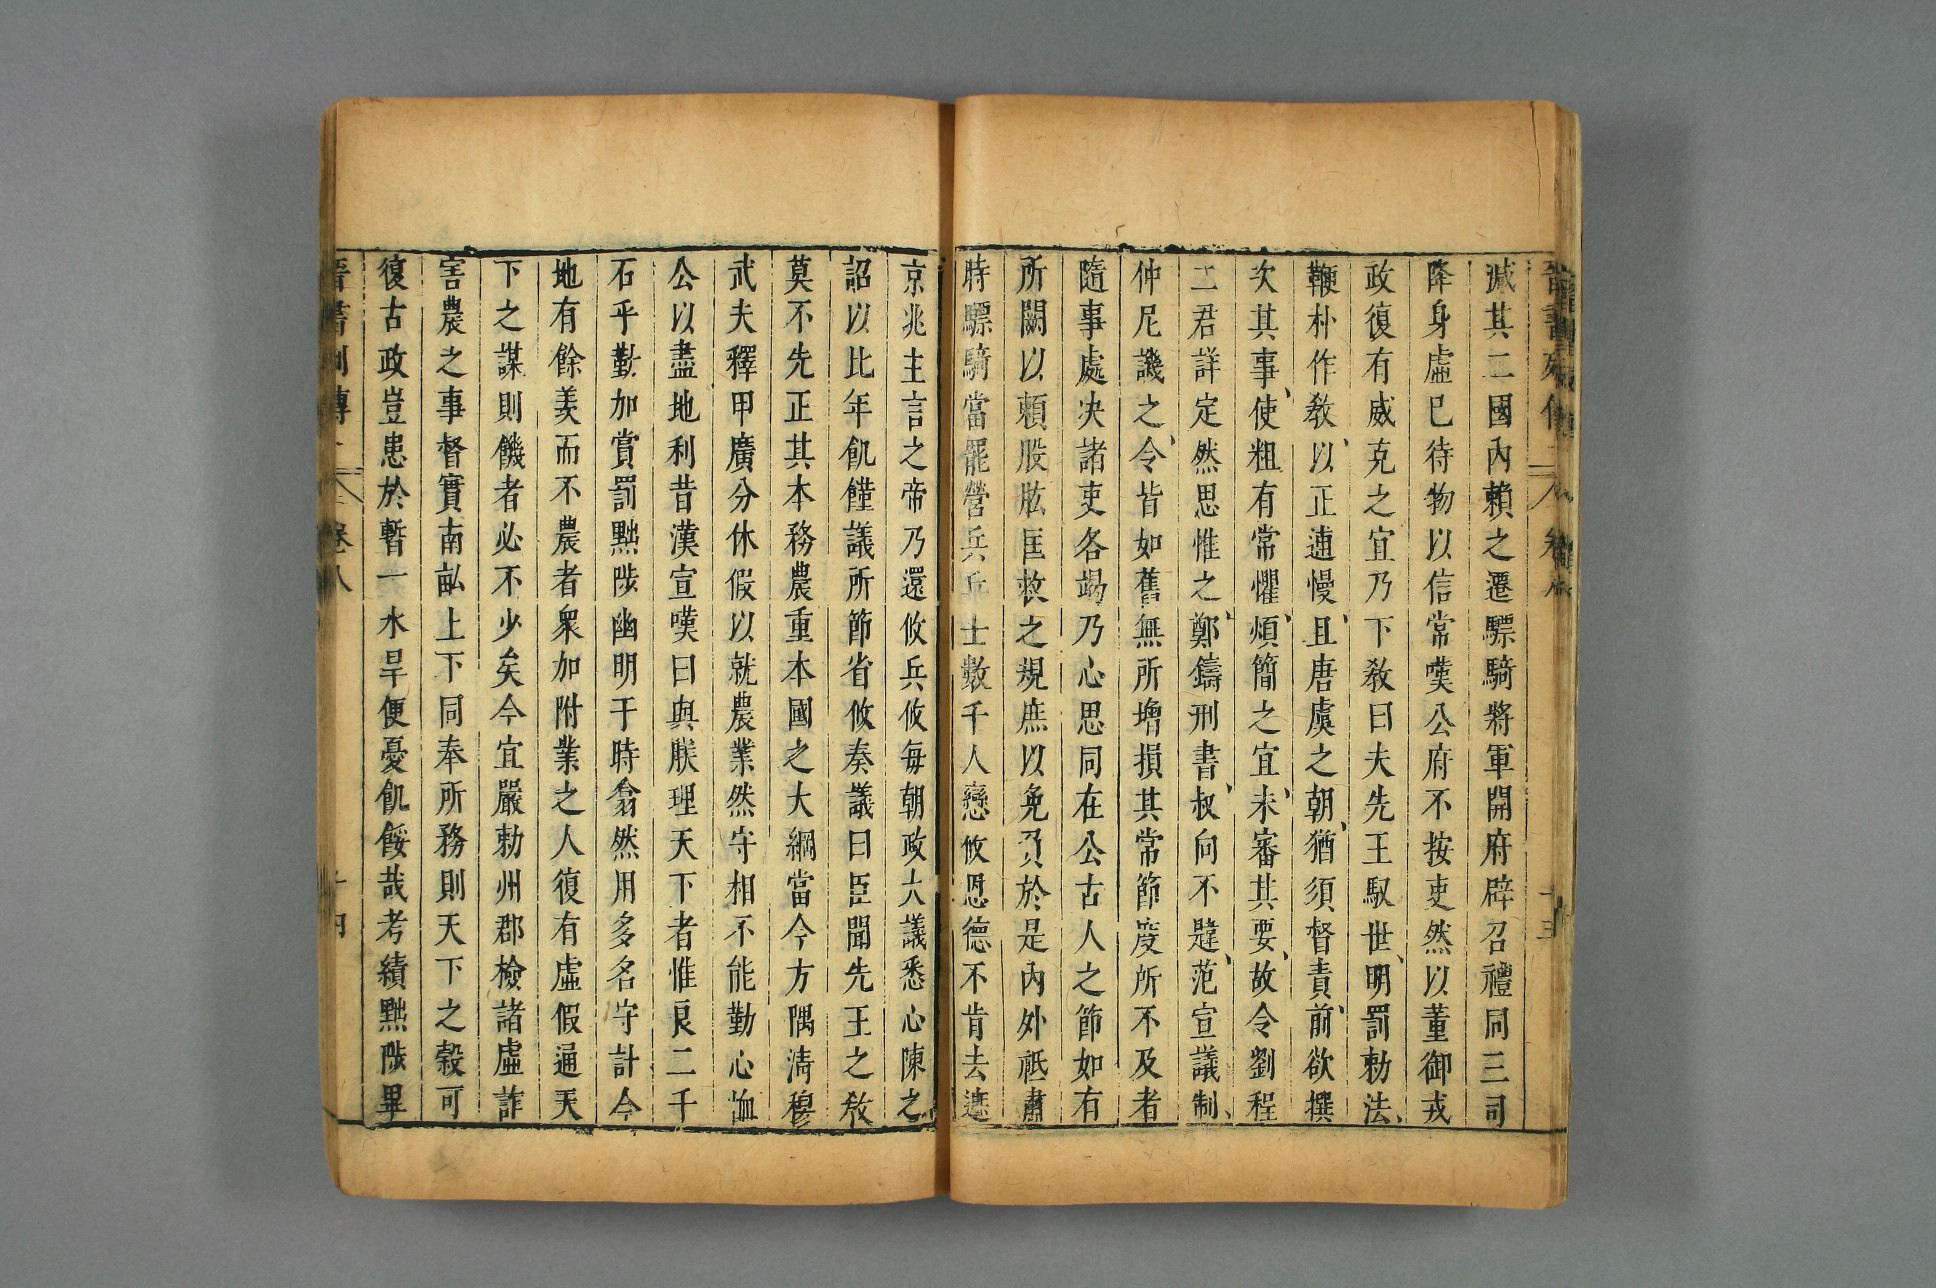 減其二國內賴之遷驃騎將軍開府辟召禮同三司
降身虛已待物以信常嘆公府不按吏然以董御戎
政復有威克之宜乃下教曰夫先王馭世明罰勅法
鞭朴作教以正逋慢且唐虞之朝猶須督責前欲撰
次其事使粗有常懼煩簡之宜未審其要故令劉程
二君詳定然思惟之鄭鑄刑書叔向不韙范宣議制
仲尼譏之令皆如舊無所增損其常節度所不及者
隨事處决諸吏各竭乃心思同在公古人之節如有
所闕以賴股肱匡救之規庶以免負於是內外祗肅
時驃騎當罷營兵兵士數千人戀攸恩德不肯去遮
京兆主言之帝乃還攸兵攸每朝政大議悉心陳之
詔以比年飢饉議所節省攸奏議曰臣聞先王之教
莫不先正其本務農重本國之大綱當今方隅清穆
武夫釋甲廣分休假以就農業然守相不能勤心恤
公以盡地利昔漢宣嘆曰與朕理天下者惟良二千
石乎勤加賞罰黜陟幽明于時翕然用多名守計今
地有餘羡而不農者衆加附業之人復有虛假通天
下之謀則饑者必不少矣今宜嚴勅州郡檢諸虛詐
害農之事督實南畝上下同奉所務則天下之穀可
復古政豈患於暫一水旱便憂飢餒哉考績黜陟畢
晋書列傳 卷八 十四